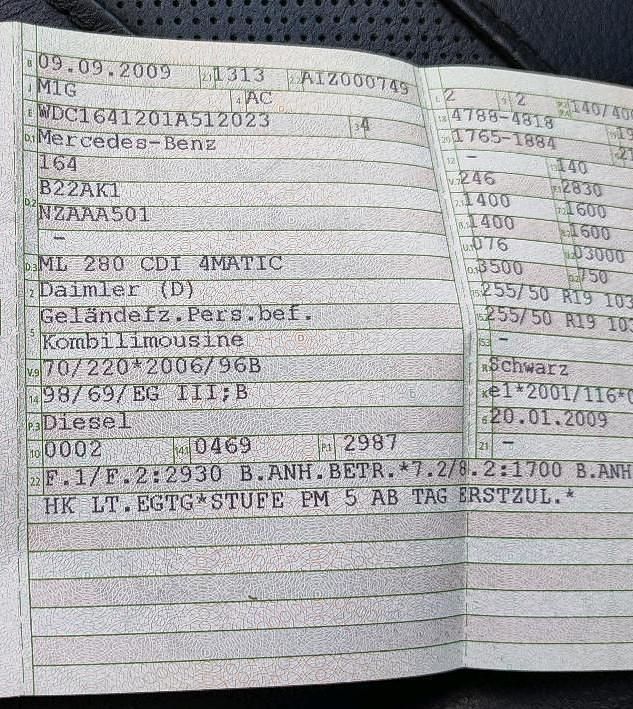 B 09.09.2009 2.1 1313 2.2 AIZ000749
J M1G 4 AC
E WDC1641201A512023 3 4
D.1 Mercedes-Benz
164
D.2 B22AK1
NZAAA501
-
D.3 ML 280 CDI 4MATIC
2 Daimler (D)
5 Geländefz.Pers.bef.
Kombilimousine
V.9 70/220*2006/96B
14 98/69/EG III;B
P.3 Diesel
10 0002 14.1 0469 P.1 2987
L 2 9 2 140/400
18 4788-4818
20 1765-1884
12 - 140
V.7 246 F.1 2830
7.1 1400 7.2 1600
8.1 1400 8.2 1600
U.1 076 U.2 03000
O.1 3500 O.2 750
15.1 255/50 R19 103
15.2 255/50 R19 103
15.3 -
R Schwarz
K e1*2001/116*0
6 20.01.2009
21 -
22 F.1/F.2:2930 B.ANH.BETR.*7.2/8.2:1700 B.ANH
HK LT.EGTG*STUFE PM 5 AB TAG ERSTZUL.*